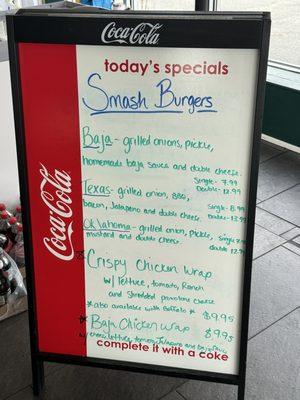 Coca-Cola
today's specials
Smash Burgers
Baja - grilled onions, pickle,
homemade baja sauce and double cheese.
Single - 7.99
Double - 12.99
Texas - grilled onion, BBQ,
bacon, Jalapeno and double cheese.
Single - 8.99
Double - 13.99
Oklahoma - grilled onion, pickle,
mustard and double cheese.
Coca-Cola
* Crispy Chicken Wrap
w/ lettuce, tomato, Ranch
and Shredded provolone cheese
*also available with Buffalo * $9.95
* Baja Chicken Wrap $9.95
complete it with a coke